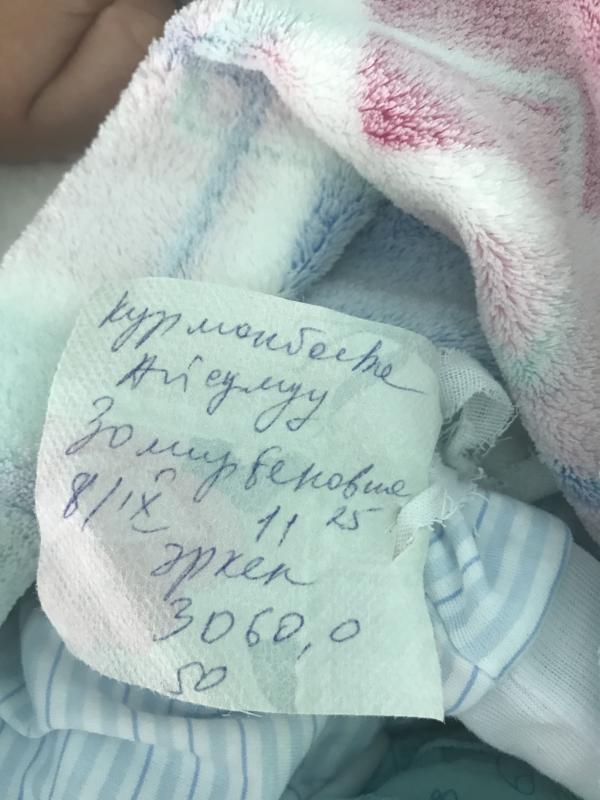 Курманбаева
Айсулуу
Замирбековна
8/IX 11 25
Эркек
3060,0
50